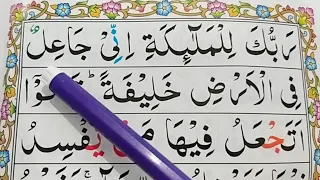 رَبُّكَ لِلْمَلٰٓئِكَةِ اِنِّیْ جَاعِلٌ
فِی الْاَرْضِ خَلِیْفَةً ؕ
اَتَجْعَلُ فِیْهَا مَنْ یُّفْسِدُ